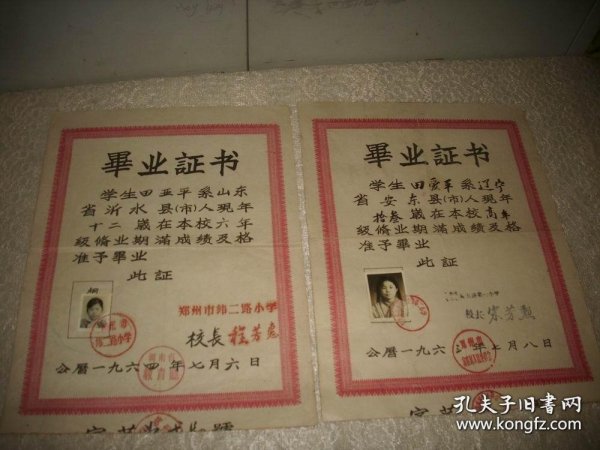 畢业証书
学生田亚平系山东
省沂水县(市)人现年
十二歲在本校六年
級修业期滿成績及格
准予畢业
此証
郑州市纬二路小学
校長
纬二路小学
公曆一九六四年七月六日
畢业証书
学生田爱军系辽宁
省安东县(市)人现年
拾叁歲在本校高年
級修业期滿成績及格
准予畢业
此証
校长
公曆一九六年七月八日
孔夫子旧书网
www.kongfz.com